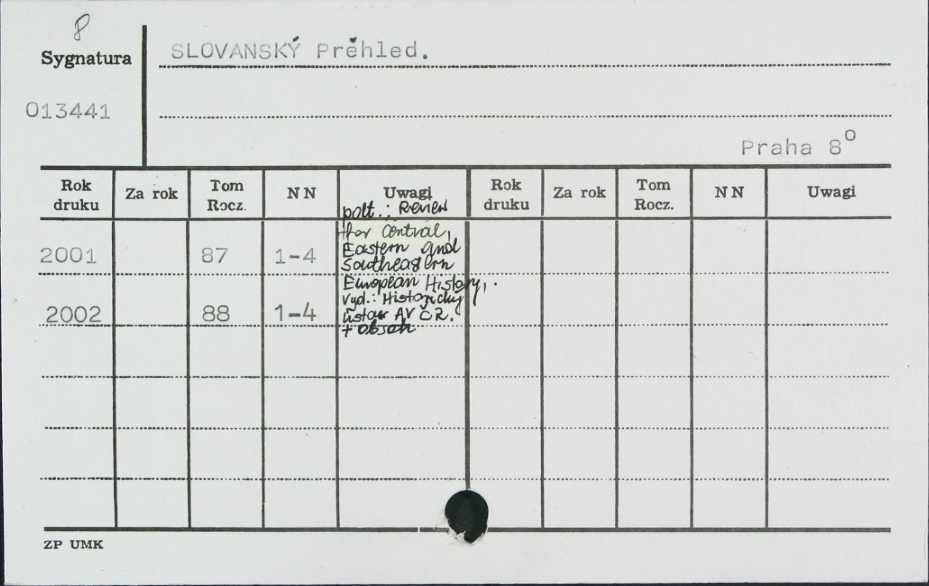 8
Sygnatura
SLOVANSKÝ Prěhled.
013441
Praha 8⁰
Rok druku Za rok Tom Rocz. N N Uwagi Rok druku Za rok Tom Rocz. N N Uwagi
: Review
for Central,
2001 87 1-4 Eastern and
Southeastern
European History,
Vyd.: Historický
2002 88 1-4 ústav AV ČR.
+ obsah
ZP UMK